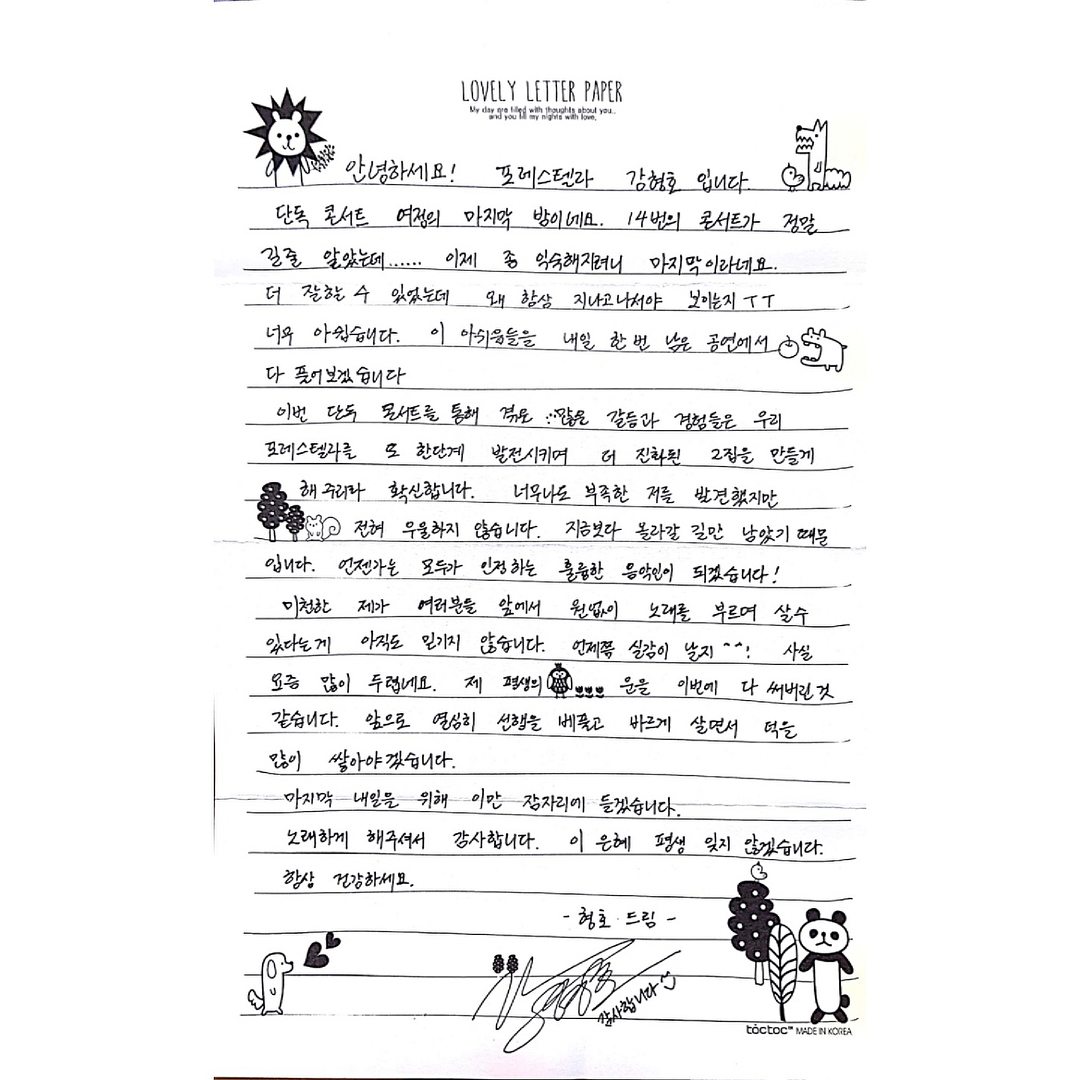 LOVELY LETTER PAPER
My day are filled with thoughts about you..
and you fill my nights with love,
안녕하세요! 포레스텔라 강형호 입니다.
단독 콘서트 여정의 마지막 밤이네요. 14번의 콘서트가 정말
길줄 알았는데...... 이제 좀 익숙해지려니 마지막이라네요.
더 잘할 수 있었는데 왜 항상 지나고나서야 보이는지 ㅜㅜ
너무 아쉽습니다. 이 아쉬움들을 내일 한번 남은 공연에서
다 풀어보겠습니다
이번 단독 콘서트를 통해 겪은 많은 갈등과 경험들은 우리
포레스텔라를 또 한단계 발전시키며 더 진화된 2집을 만들게
해 주리라 확신합니다. 너무나도 부족한 저를 발견했지만
전혀 우울하지 않습니다. 지금보다 올라갈 길만 남았기 때문
입니다. 언젠가는 모두가 인정하는 훌륭한 음악인이 되겠습니다!
미천한 제가 여러분들 앞에서 원없이 노래를 부르며 살수
있다는게 아직도 믿기지 않습니다. 언제쯤 실감이 날지 ^^! 사실
요즘 많이 두렵네요. 제 평생의 운을 이번에 다 써버린것
같습니다. 앞으로 열심히 선행을 베풀고 바르게 살면서 덕을
많이 쌓아야겠습니다.
마지막 내일을 위해 이만 잠자리에 들겠습니다.
노래하게 해주셔서 감사합니다. 이 은혜 평생 잊지 않겠습니다.
항상 건강하세요.
- 형호 드림 -
감사합니다
tóctoc™ MADE IN KOREA